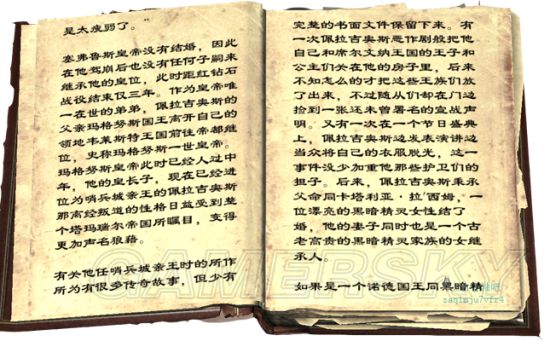 是太疲弱了。”
塞弗鲁斯皇帝没有结婚，因此
在他驾崩后也没有任何子嗣来
继承他的皇位，此时距红钻石
战役结束仅三年。作为皇帝唯
一在世的弟弟，佩拉吉奥斯的
父亲玛格努斯国王离开自己的
领地韦莱斯特王国前往帝都继
位，史称玛格努斯一世皇帝。
玛格努斯皇帝此时已经人过中
年，他的皇长子，现在已经进
位为哨兵城亲王的佩拉吉奥斯
那离经叛道的性格日益受到整
个塔玛瑞尔帝国所瞩目，变得
更加声名狼藉。
有关他任哨兵城亲王时的所作
所为有很多传奇故事，但少有
完整的书面文件保留下来。有
一次佩拉吉奥斯恶作剧般把他
自己和席尔文纳王国的王子和
公主们关在他的房子里，后来
不知怎么的才把这些王族们放
了出来，不过随从们却在门边
捡到一张还未曾署名的宣战声
明。又有一次在一个节日盛典
上，佩拉吉奥斯边发表演讲边
当众将自己的衣服脱光，这一
事件没少加重他那些护卫们的
担子。后来，佩拉吉奥斯秉承
父命同卡塔利亚·拉’西姆，一
位漂亮的黑暗精灵女性结了
婚，他的妻子同时也是一个古
老高贵的黑暗精灵家族的女继
承人。
如果是一个诺德国王同黑暗精
GAMERSKY
zaq1mju7vfr4